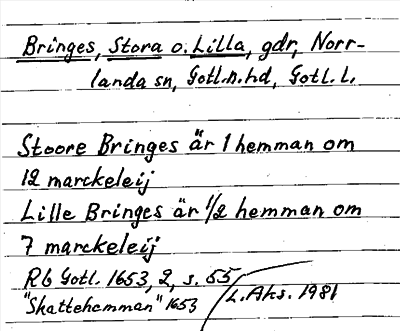 Bringes, Stora o. Lilla, gdr, Norr-
landa sn, Gotl.n.hd, Gotl. L.
Stoore Bringes är 1 hemman om
12 marckeleij
Lille Bringes är 1/2 hemman om
7 marckeleij
Rb Gotl. 1653, 2, s. 55
"Skattehemman" 1653
L. Ahs. 1981